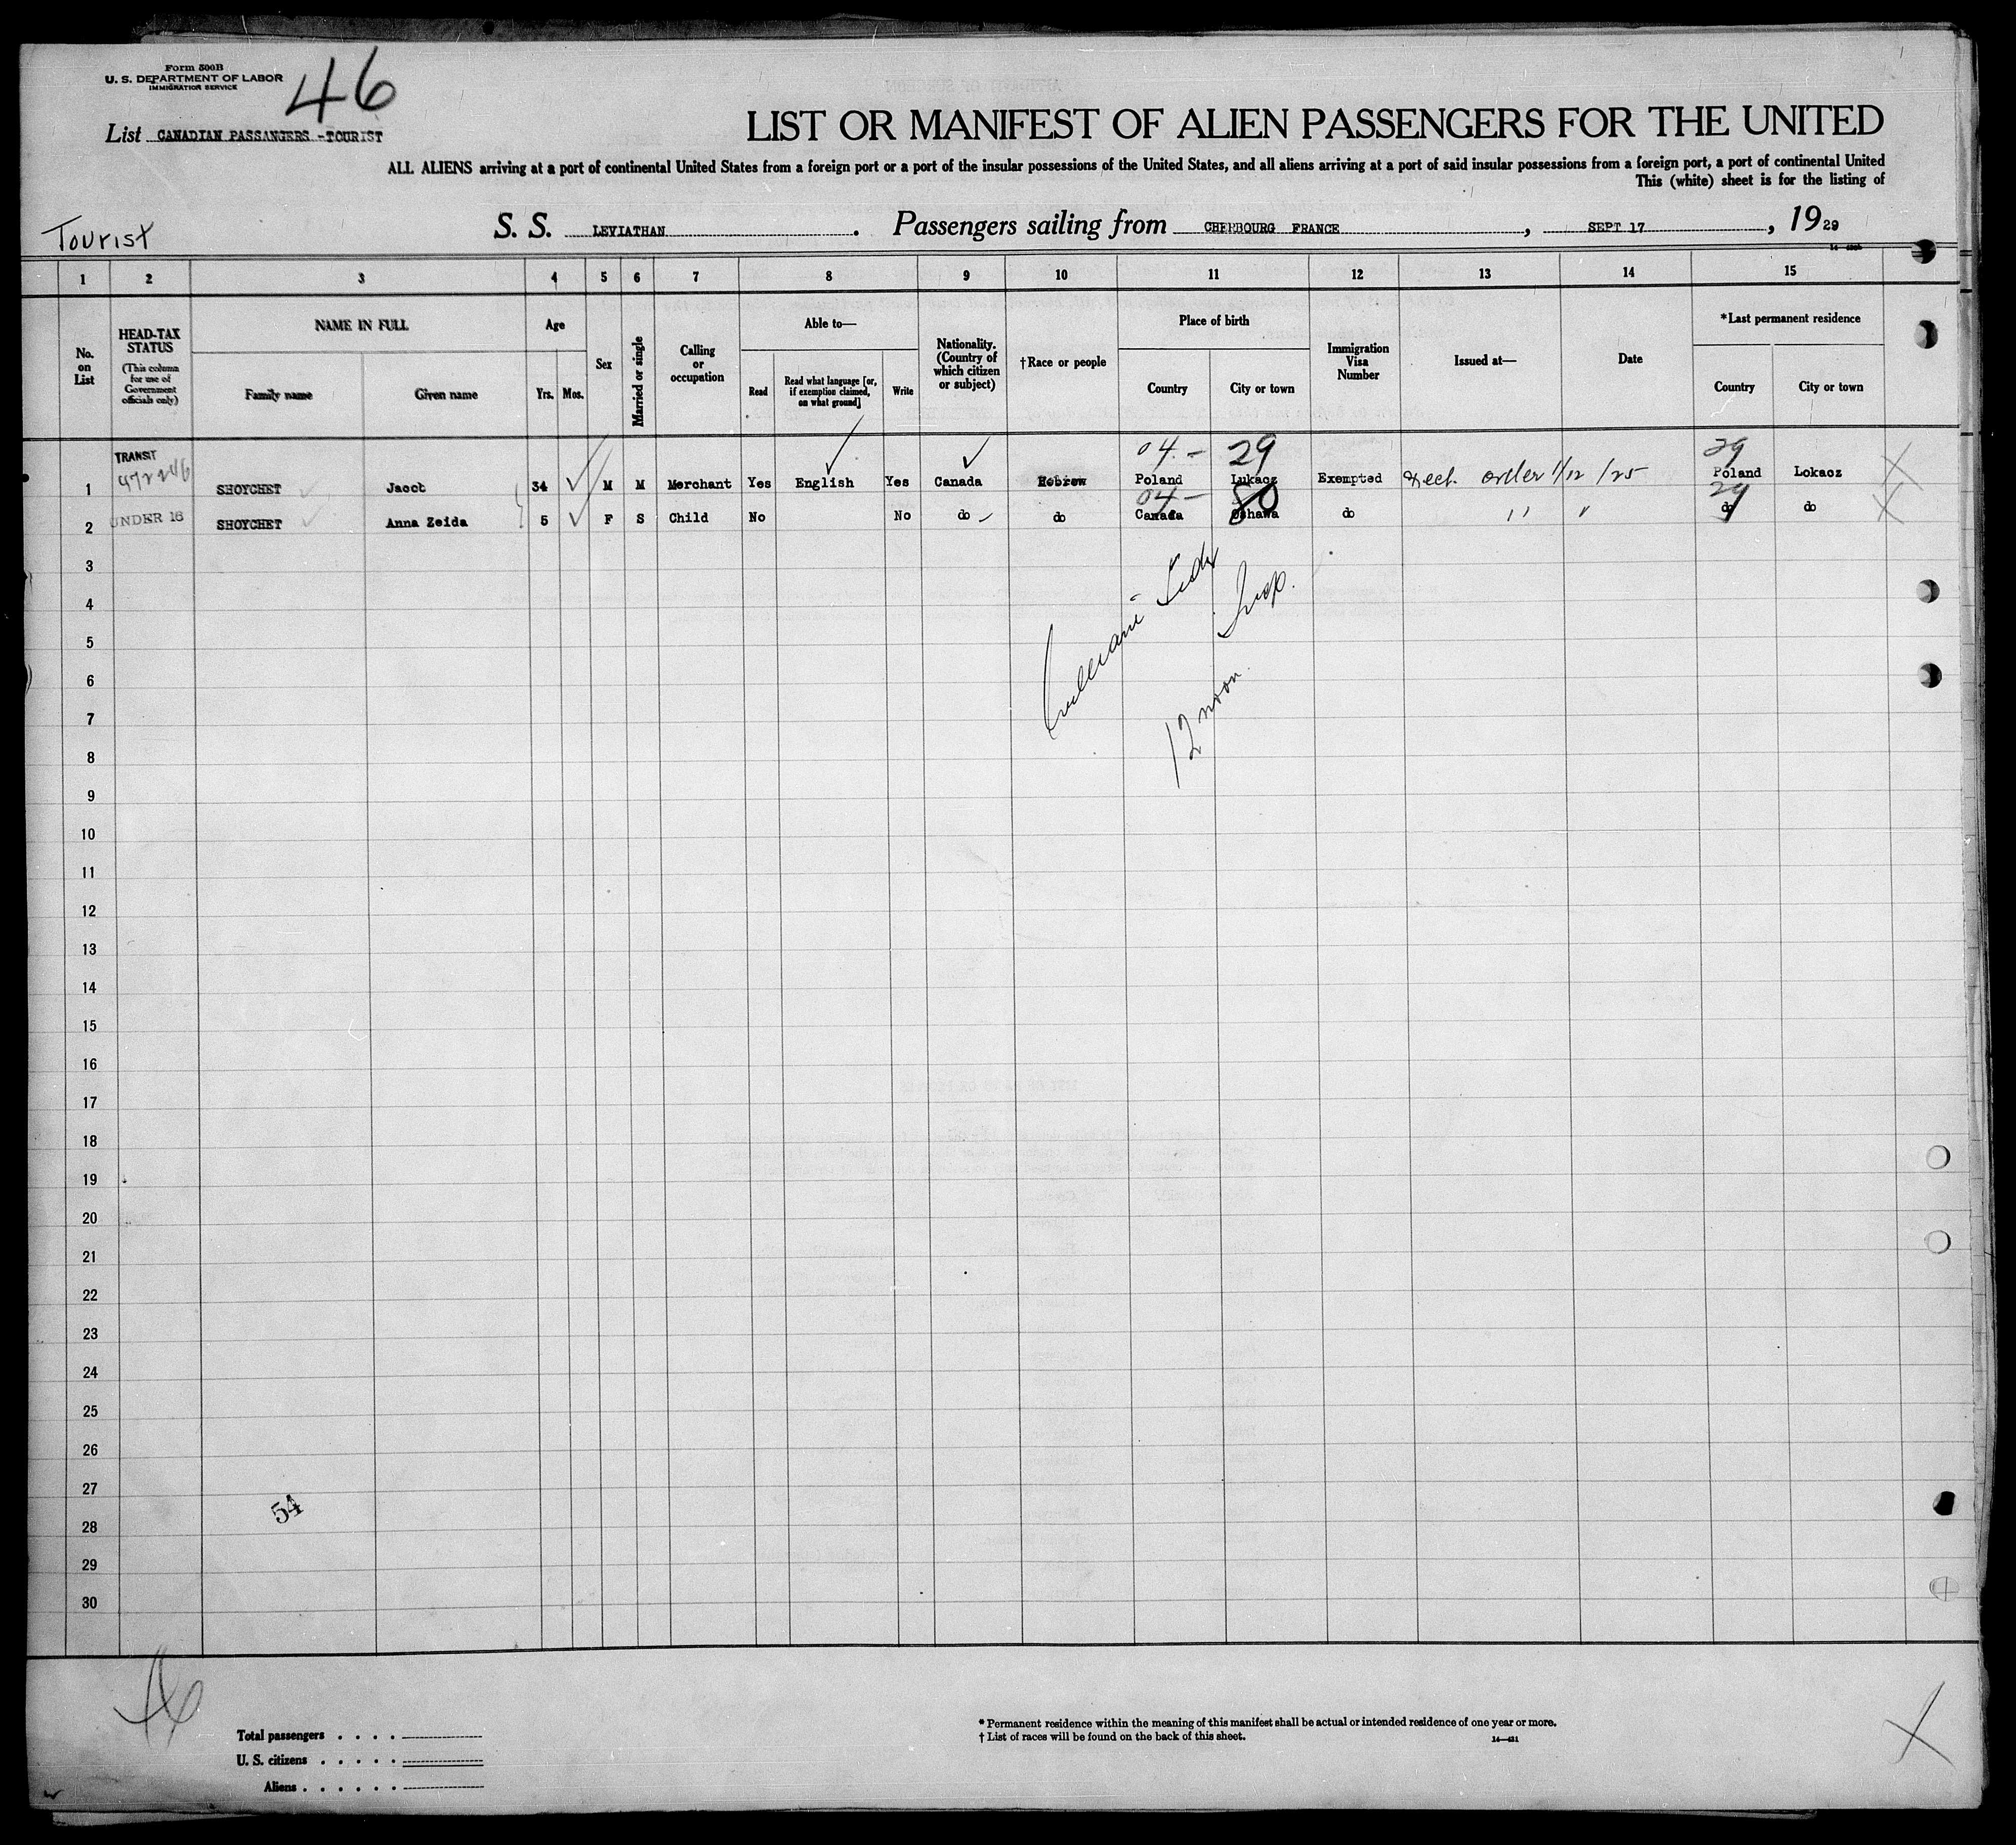 Form 500B
U. S. DEPARTMENT OF LABOR
IMMIGRATION SERVICE
46
List CANADIAN PASSANGERS -TOURIST
LIST OR MANIFEST OF ALIEN PASSENGERS FOR THE UNITED
ALL ALIENS arriving at a port of continental United States from a foreign port or a port of the insular possessions of the United States, and all aliens arriving at a port of said insular possessions from a foreign port, a port of continental United
This (white) sheet is for the listing of
Tourist
S. S. LEVIATHAN . Passengers sailing from CHERBOURG FRANCE , SEPT 17 , 1929
1 2 3 4 5 6 7 8 9 10 11 12 13 14 15
No. on List
HEAD-TAX STATUS
(This column for use of Government officials only)
NAME IN FULL
Family name Given name
Age
Yrs. Mos.
Sex
Married or single
Calling or occupation
Able to—
Read
Read what language [or, if exemption claimed, on what ground]
Write
Nationality. (Country of which citizen or subject)
†Race or people
Place of birth
Country City or town
Immigration Visa Number
Issued at—
Date
*Last permanent residence
Country City or town
TRANSIT 04.- 29 29
1 472246 SHOYCHET 34 M M Merchant Yes English Yes Canada Hebrew Poland Lukacz Exempted order 1/12/25 Poland Lokacz
04- 80 29
2 UNDER 16 SHOYCHET Anna Zeida 5 F S Child No No do do Canada Oshawa do " " do do
3
4
5
6
7
8
9
10
11
12
13
14
15
16
17
18
19
20
21
22
23
24
25
26
27
28
29
30
Insp.
12 noon
54
46
Total passengers . . . .
U. S. citizens . . . . .
Aliens . . . . . .
* Permanent residence within the meaning of this manifest shall be actual or intended residence of one year or more.
† List of races will be found on the back of this sheet.
14—421